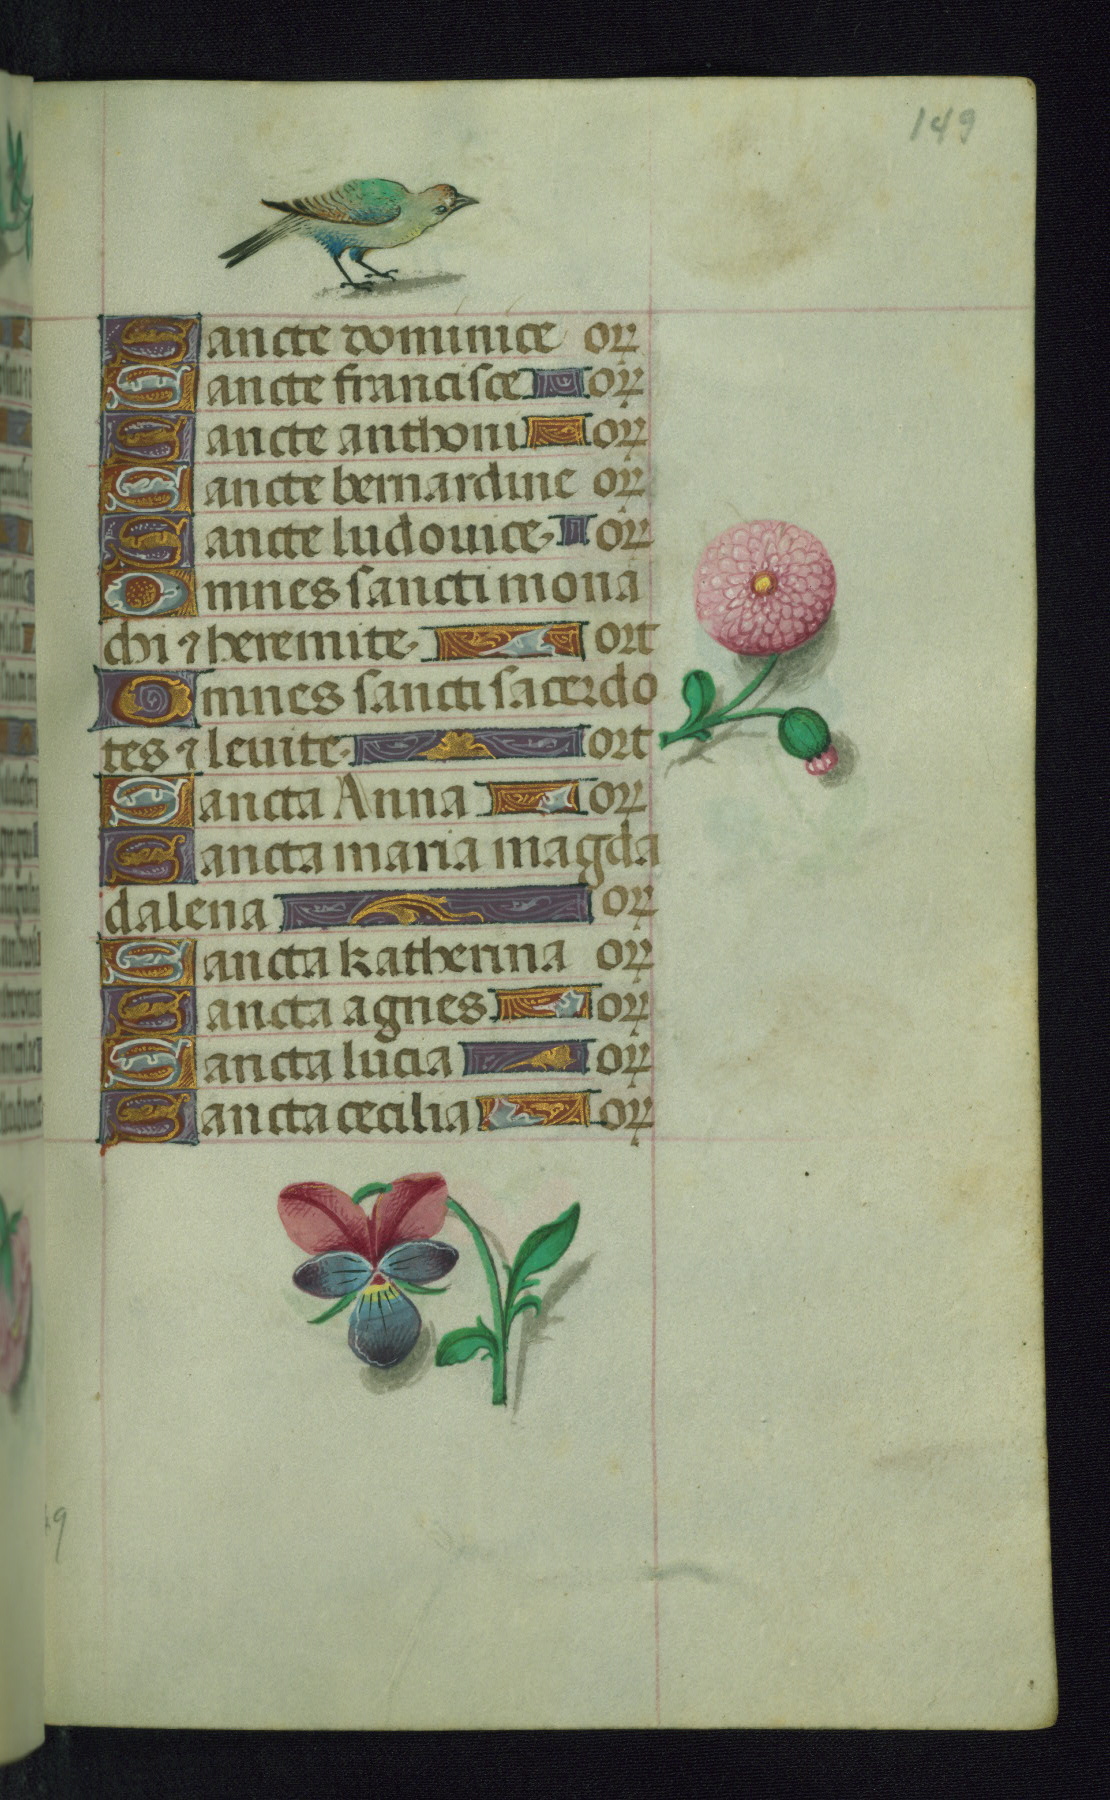 149
Sancte dominice or
Sancte francisce or
Sancte anthoni or
Sancte bernardine or
Sancte ludovice or
Omnes sancti mona
chi ⁊ heremite. ort
Omnes sancti sacerdo
tes ⁊ levite. ort
Sancta Anna or
Sancta maria magda
dalena or
Sancta katherina or
Sancta agnes or
Sancta lucia or
Sancta cecilia or